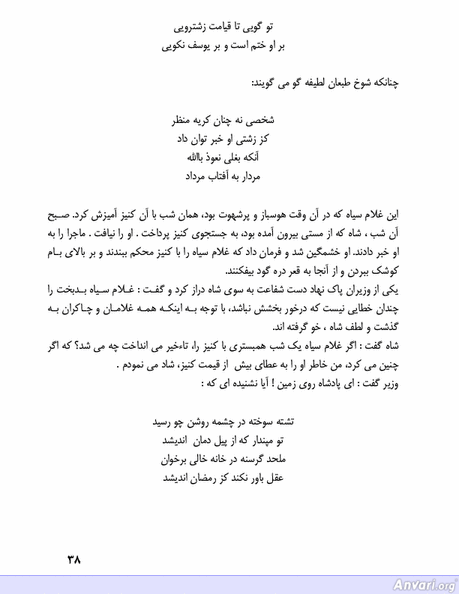 تو گویی تا قیامت زشترویی
بر او ختم است و بر یوسف نکویی
چنانکه شوخ طبعان لطیفه گو می گویند:
شخصی نه چنان کریه منظر
کز زشتی او خبر توان داد
آنکه بغلی نعوذ باالله
مردار به آفتاب مرداد
این غلام سیاه که در آن وقت هوسباز و پرشهوت بود، همان شب با آن کنیز آمیزش کرد. صبح
آن شب ، شاه که از مستی بیرون آمده بود، به جستجوی کنیز پرداخت . او را نیافت . ماجرا را به
او خبر دادند. او خشمگین شد و فرمان داد که غلام سیاه را با کنیز محکم ببندند و بر بالای بام
کوشک ببردن و از آنجا به قعر دره گود بیفکنند.
یکی از وزیران پاک نهاد دست شفاعت به سوی شاه دراز کرد و گفت : غلام سیاه بدبخت را
چندان خطایی نیست که درخور بخشش نباشد، با توجه به اینکه همه غلامان و چاکران به
گذشت و لطف شاه ، خو گرفته اند.
شاه گفت : اگر غلام سیاه یک شب همبستری با کنیز را، تاءخیر می انداخت چه می شد؟ که اگر
چنین می کرد، من خاطر او را به عطای بیش از قیمت کنیز، شاد می نمودم .
وزیر گفت : ای پادشاه روی زمین ! آیا نشنیده ای که :
تشنه سوخته در چشمه روشن چو رسید
تو مپندار که از پیل دمان اندیشد
ملحد گرسنه در خانه خالی برخوان
عقل باور نکند کز رمضان اندیشد
۳۸
Anvari.org